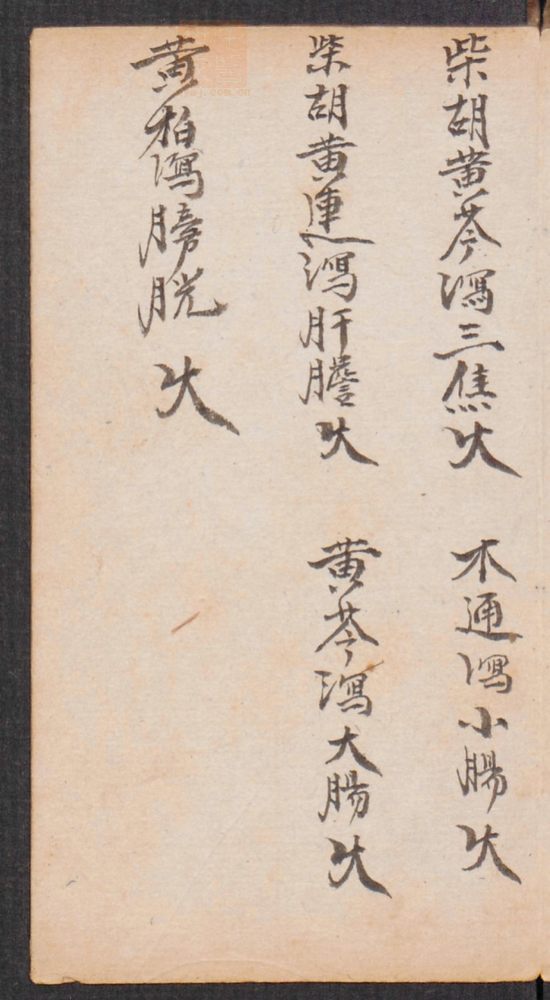 柴胡黄芩瀉三焦火
木通瀉小腸火
柴胡黄連瀉肝膽火
黄芩瀉大腸火
黄柏瀉膀胱火